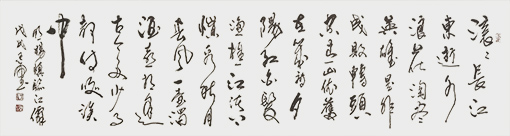 滚滚長江
東逝水
浪花淘尽
英雄是非
成敗轉頭
空青山依舊
在幾度夕
陽紅白髮
漁樵江渚上
惯看秋月
春風一壶濁
酒喜相逢
古今多少事
都付笑談
中
明楊慎臨江仙
戊戌